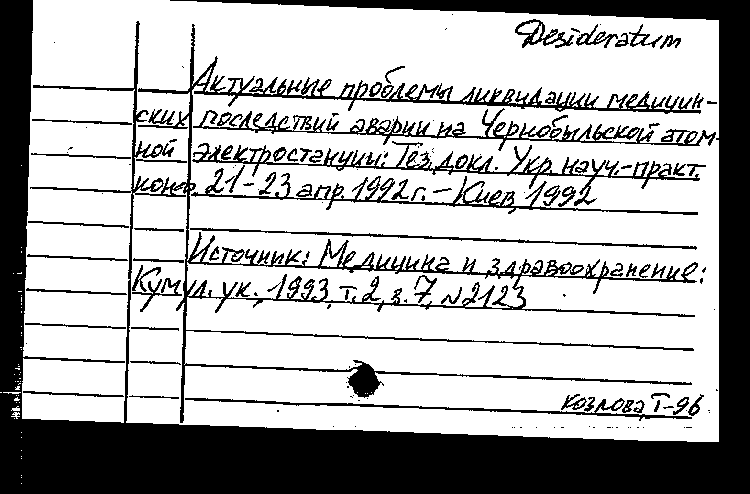 Desideratum
Актуальные проблемы ликвидации медицин-
ских последствий аварии на Чернобыльской атом-
ной электростанции: Тез. докл. Укр. науч.-практ.
конф. 21-23 апр. 1992 г. - Киев, 1992
Источник: Медицина и здравоохранение:
Кумул. ук., 1993, т. 2, в. 7, №2123
Козлова, Т-96